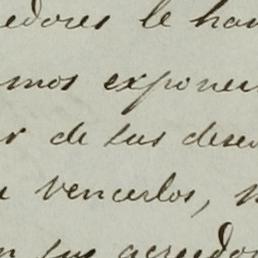 edores le han
mos exponer
r de sus deseo
vencerlos,
n sus acreedor